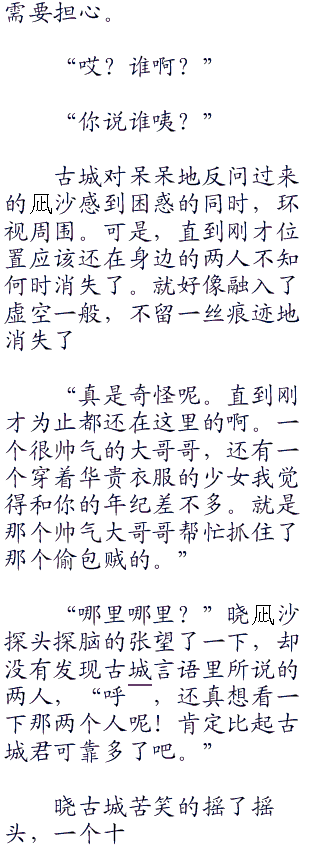 需要担心。
“哎？谁啊？”
“你说谁咦？”
古城对呆呆地反问过来
的凪沙感到困惑的同时，环
视周围。可是，直到刚才位
置应该还在身边的两人不知
何时消失了。就好像融入了
虚空一般，不留一丝痕迹地
消失了
“真是奇怪呢。直到刚
才为止都还在这里的啊。一
个很帅气的大哥哥，还有一
个穿着华贵衣服的少女我觉
得和你的年纪差不多。就是
那个帅气大哥哥帮忙抓住了
那个偷包贼的。”
“哪里哪里？”晓凪沙
探头探脑的张望了一下，却
没有发现古城言语里所说的
两人，“呼——，还真想看一
下那两个人呢！肯定比起古
城君可靠多了吧。”
晓古城苦笑的摇了摇
头，一个十